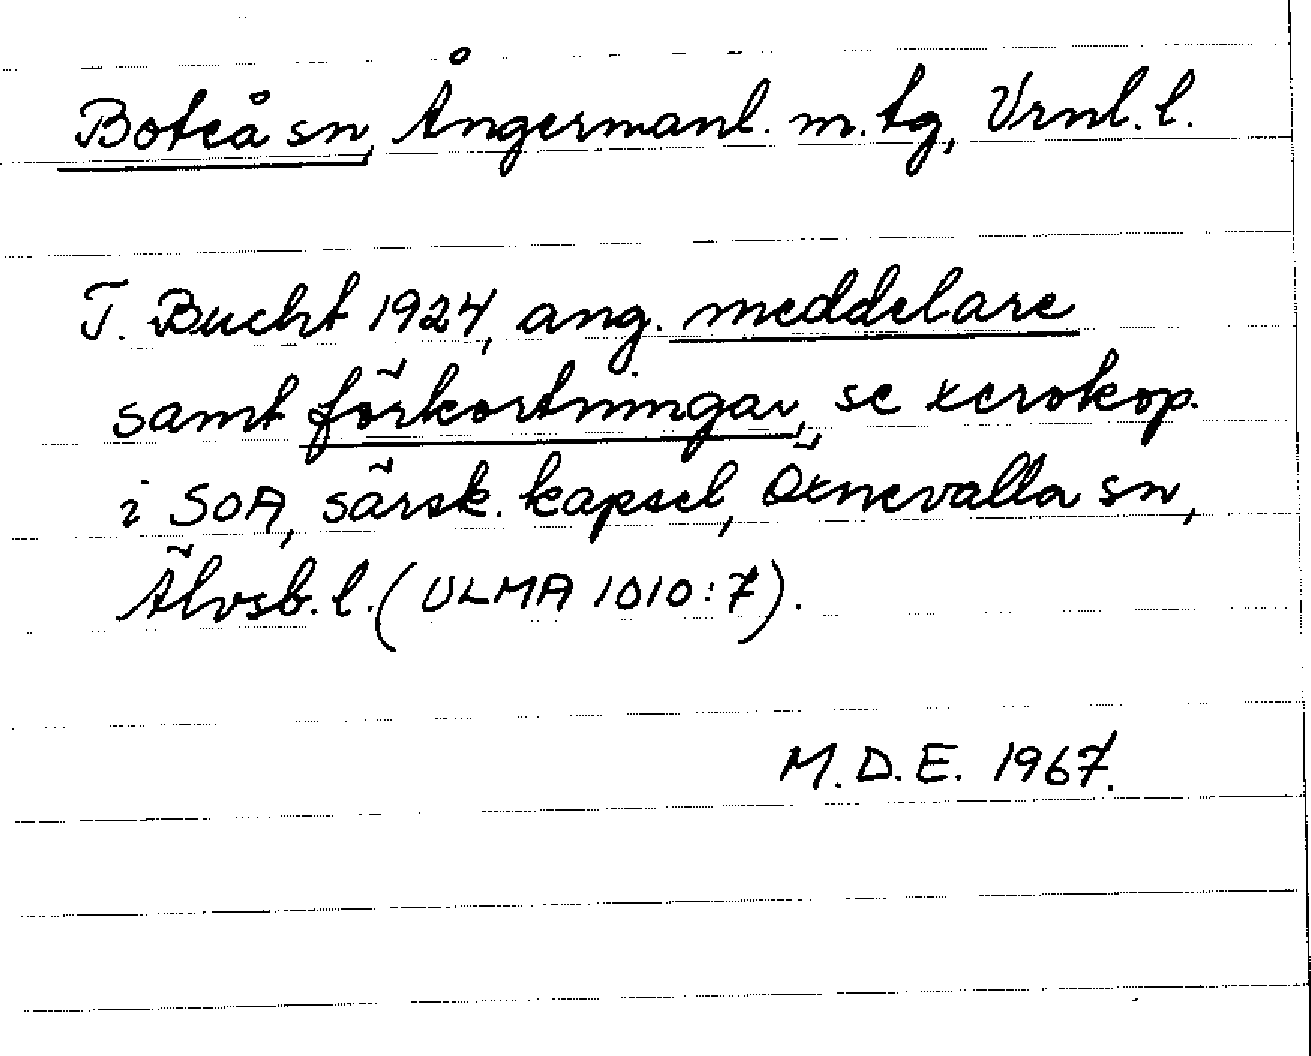 Boteå sn, Ångermanl. m. tg, Vrnl. l.
T. Bucht 1924, ang. meddelare
samt förkortningar, se xerokop.
i SOA, särsk. kapsel, Öxnevalla sn,
Älvsb. l. (ULMA 1010:7).
M.D.E. 1967.